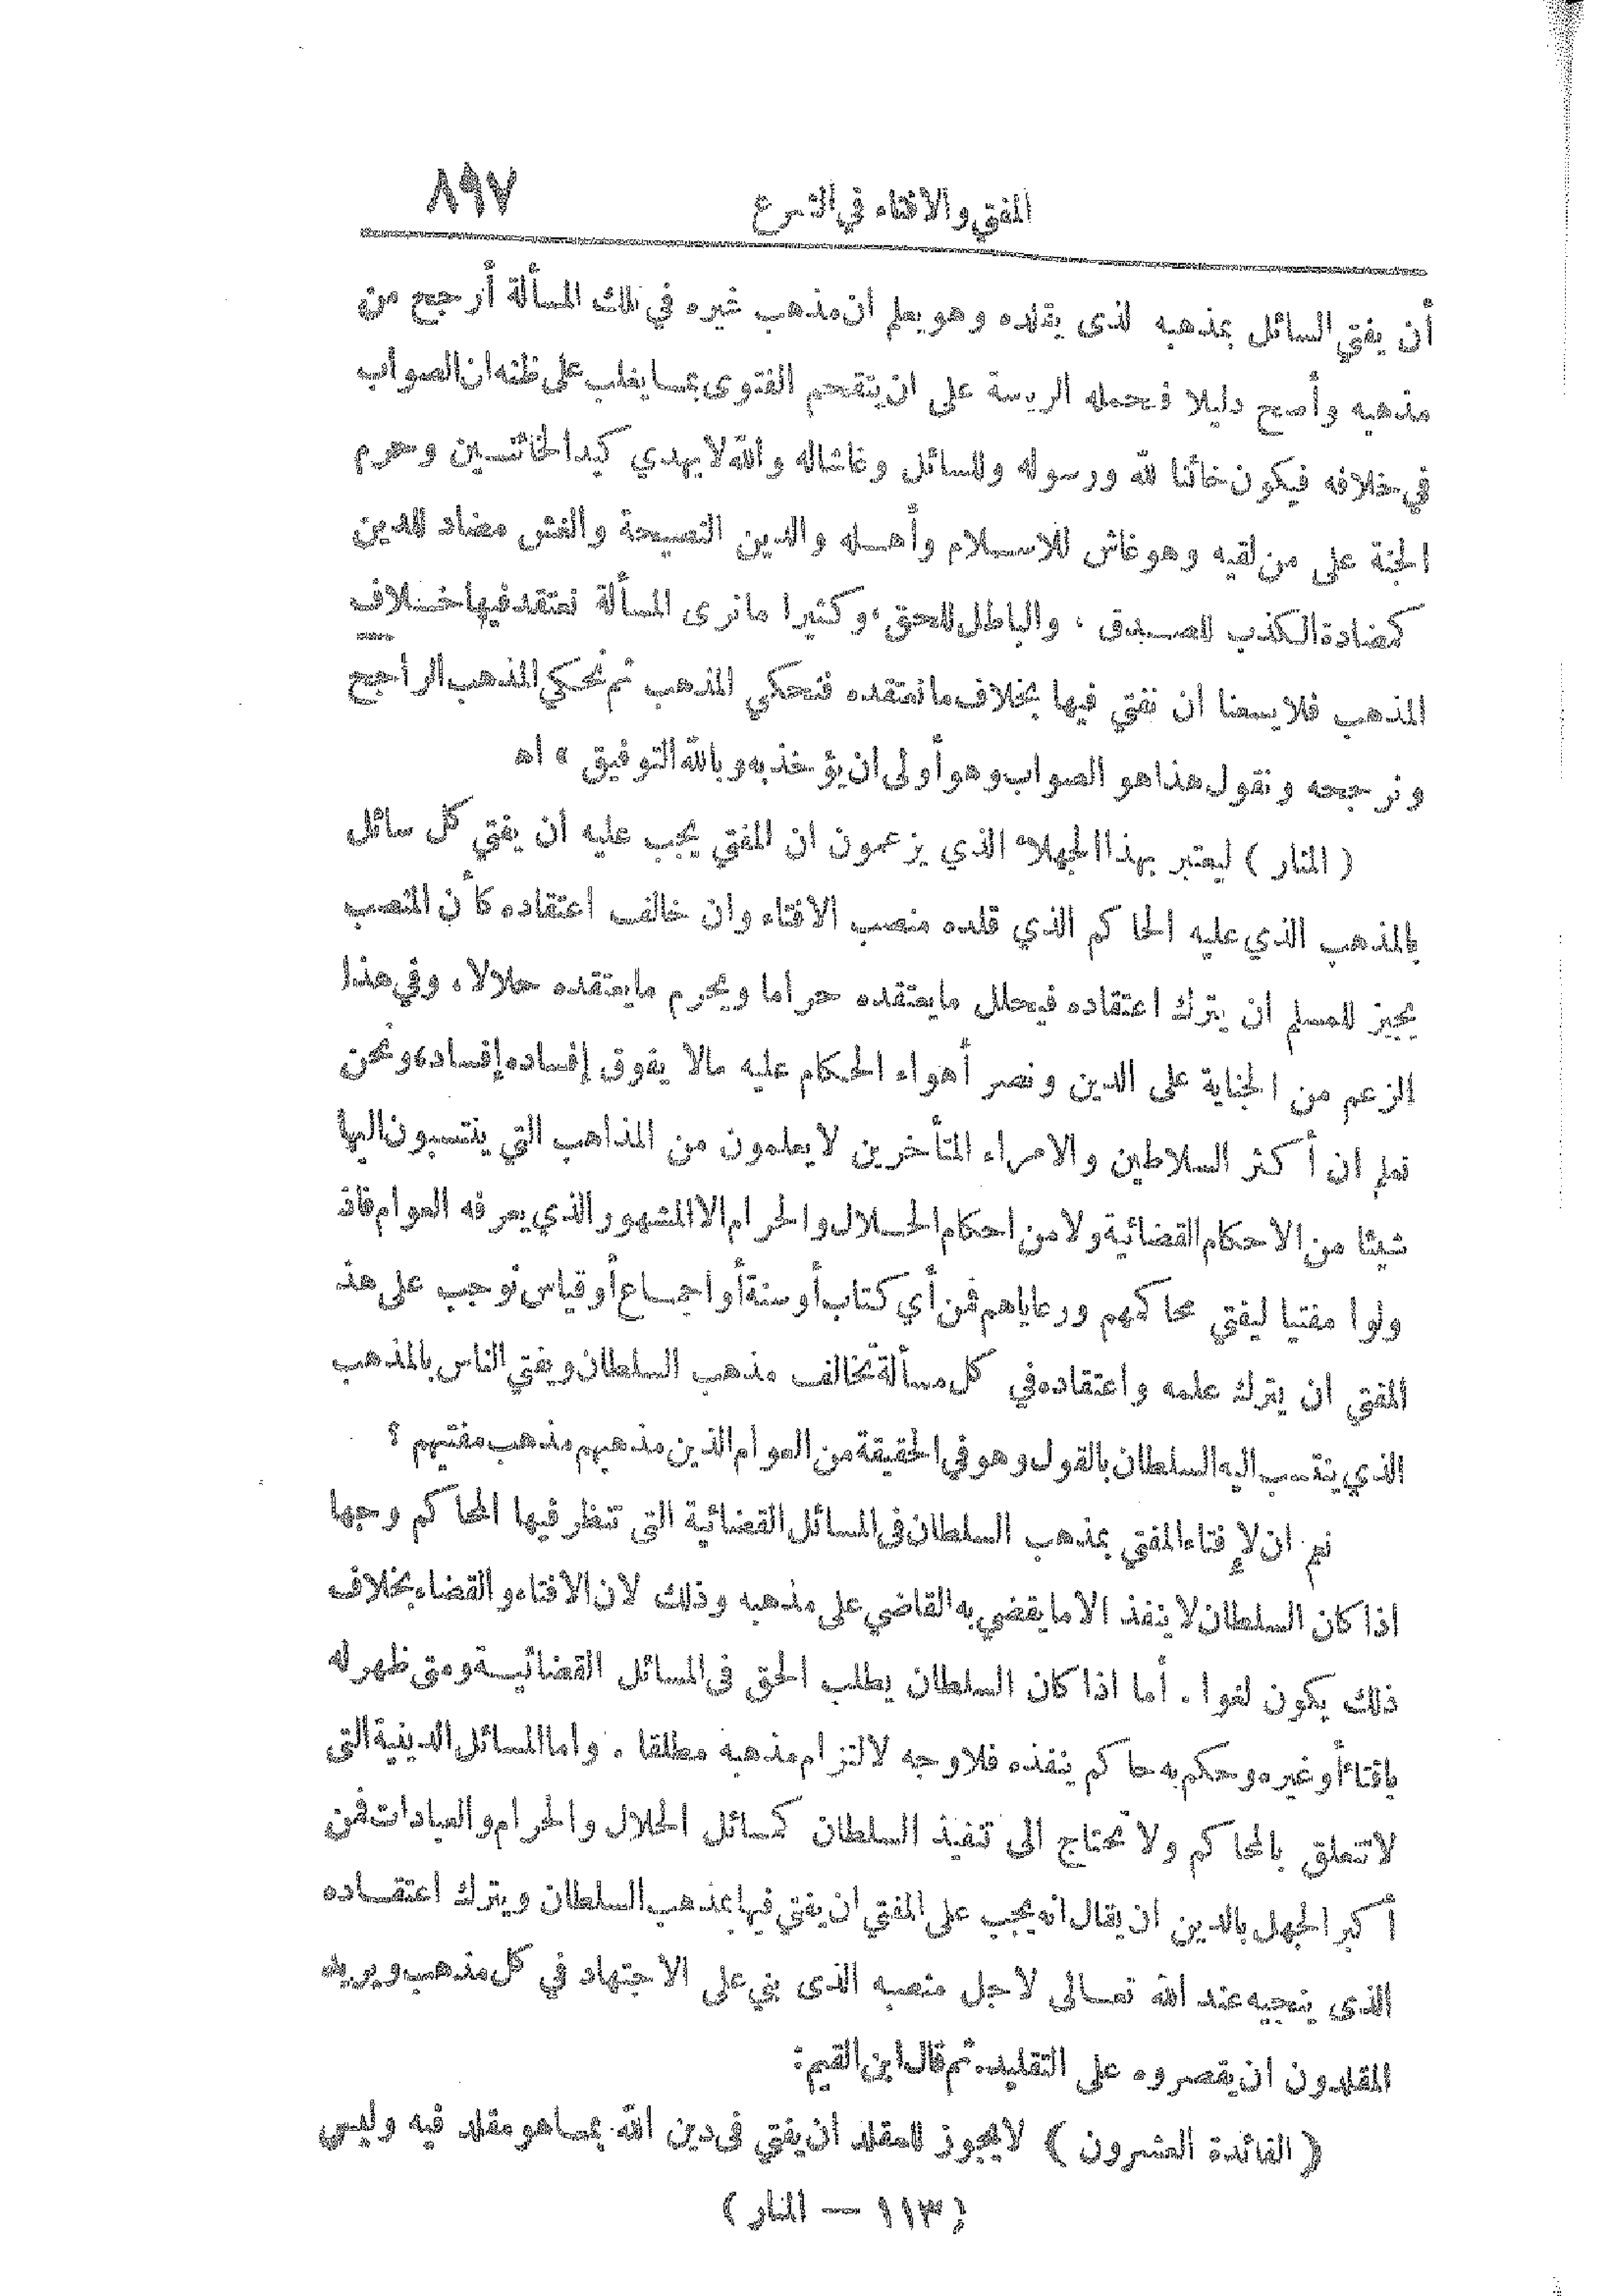 المفتي والافتاء في الشرع ٨٩٧
أن يفتي السائل بمذهبه لذى يقلده وهو يعلم ان مذهب غيره في تلك المسألة أرجح من
مذهبه وأصح دليلا فتحمله الرياسة على ان يتقحم الفتوى بما يغلب على ظنه ان الصواب
في خلافه فيكون خائنا لله ورسوله وللسائل وغاشا له والله لا يهدي كيد الخائنين وحرم
الجنة على من لقيه وهو غاش للاسلام وأهله والدين النصيحة والغش مضاد للدين
كمضادة الكذب للصدق ، والباطل للحق ، وكثيرا ما نرى المسألة نعتقد فيها خلاف
المذهب فلا يسعنا ان نفتي فيها بخلاف ما نعتقده فنحكي المذهب ثم نحكي المذهب الراجح
ونرجحه ونقول هذا هو الصواب وهو أولى ان يؤخذ به وبالله التوفيق » اه
( المنار ) ليعتبر بهذا الجهلاء الذي يزعمون ان المفتي يجب عليه ان يفتي كل سائل
بالمذهب الذي عليه الحاكم الذي قلده منصب الافتاء وان خالف اعتقاده كأن المنصب
يجيز للمسلم ان يترك اعتقاده فيحلل ما يعتقده حراما ويحرم ما يعتقده حلالا ، وفي هذا
الزعم من الجناية على الدين ونصر أهواء الحكام عليه مالا يفوق إفساده إفساد، ونحن
نعلم ان أكثر السلاطين والامراء المتأخرين لا يعلمون من المذاهب التي ينتسبون اليها
شيئا من الاحكام القضائية ولا من احكام الحلال والحرام الا المشهور الذي يعرفه العوام فاذ
ولوا مفتيا ليفتي محاكمهم ورعاياهم فمن أي كتاب أو سنة أو اجماع أو قياس نوجب على هذ
المفتي ان يترك علمه واعتقاده في كل مسألة تخالف مذهب السلطان ويفتي الناس بالمذهب
الذي ينتسب اليه السلطان بالقول وهو في الحقيقة من العوام الذين مذهبهم مذهب مفتيهم ؟
نعم ان لإفتاء المفتي بمذهب السلطان في المسائل القضائية التي تنظر فيها المحاكم وجها
اذا كان السلطان لا ينفذ الا ما يقضي به القاضي على مذهبه وذلك لان الافتاء والقضاء بخلاف
ذلك يكون لغوا . أما اذا كان السلطان يطلب الحق في المسائل القضائية ومتى ظهر له
بافتاء أو غيره وحكم به حاكم ينفذه فلا وجه لالتزام مذهبه مطلقا . واما المسائل الدينية التي
لا تتعلق بالمحاكم ولا تحتاج الى تنفيذ السلطان كمسائل الحلال والحرام والعبادات فمن
أكبر الجهل بالدين ان يقال انه يجب على المفتي ان يفتي فيها بمذهب السلطان ويترك اعتقاده
الذى ينجيه عند الله تعالى لاجل منصبه الذى بني على الاجتهاد في كل مذهب ويريد
المقلدون ان يقصروه على التقليد. ثم قال ابن القيم:
( الفائدة العشرون ) لا يجوز للمقلد ان يفتي في دين الله بما هو مقلد فيه وليس
(١١٣ — المنار)